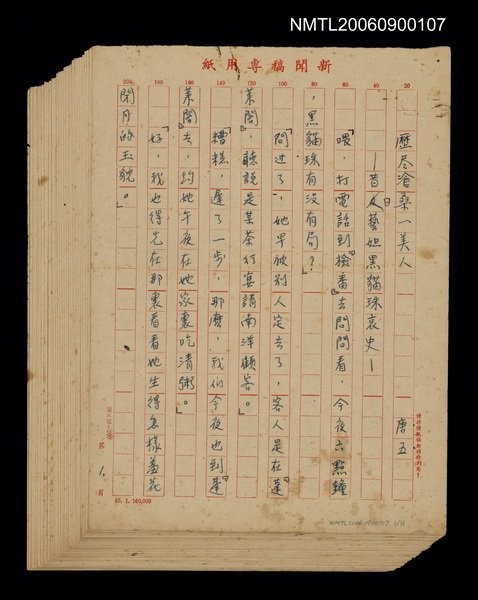 NMTL20060900107
新聞稿專用紙
歷尽滄桑一美人
唐五
—昔日藝妲黑貓珠哀史—
「喂,打電話到『檢番』去問問看,今夜六點鐘
,黑貓珠有沒有局?」
「問过了,她早被別人定去了,客人是在『蓬
萊閣』,聽說是某茶行宴請南洋顧客。」
「糟糕,遲了一步,那麼,我们今夜也到『蓬
萊閣』去,約她午夜在她家裏吃清粥。」
「好,我也得先在那裏看看她生得怎樣羞花
閉月的玉貌。」
20
40
60
80
100
120
140
160
180
200
第 1 頁
55.1.160,000
NMTL20060900107 1/31